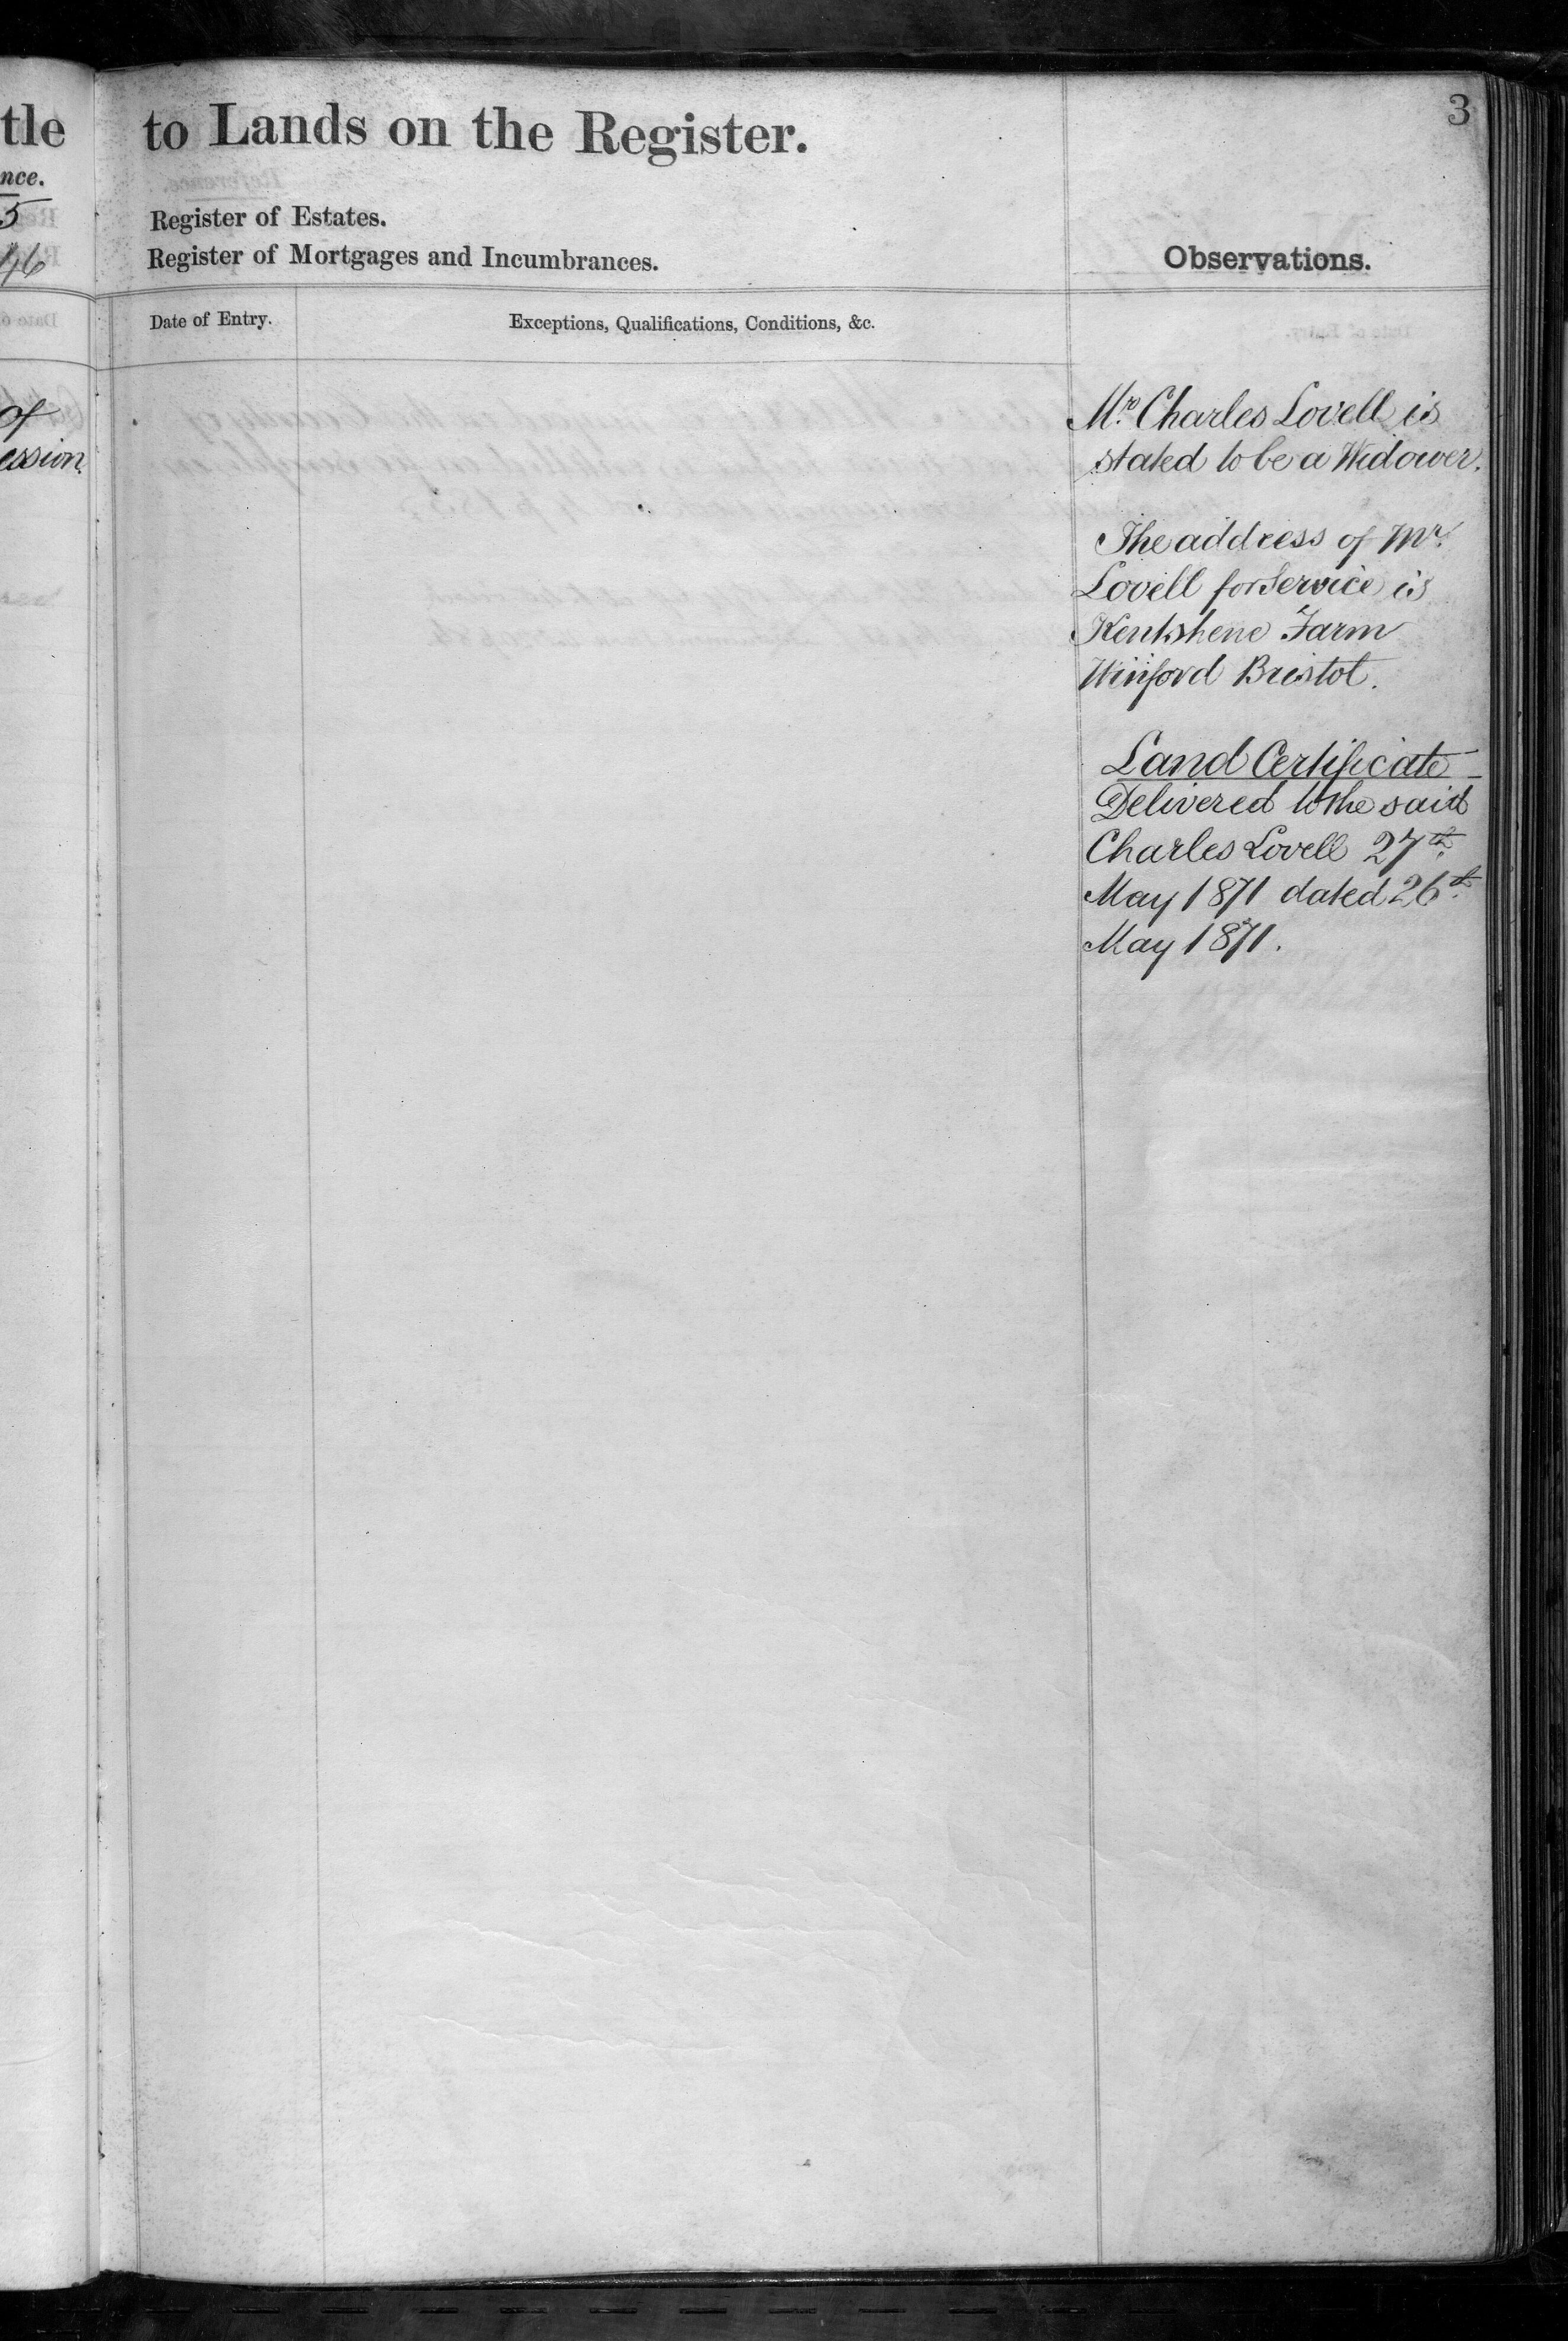 tle
nce.
5
46
of
ession
3
to Lands on the Register.
Register of Estates.
Register of Mortgages and Incumbrances.
Observations.
Date of Entry.
Exceptions, Qualifications, Conditions, &c.
Mr. Charles Lovell is
stated to be a Widower.
The address of Mr.
Lovell for Service is
Kentshene Farm
Winford Bristol.
Land Certificate
Delivered to the said
Charles Lovell 27th.
May 1871 dated 26th.
May 1871.